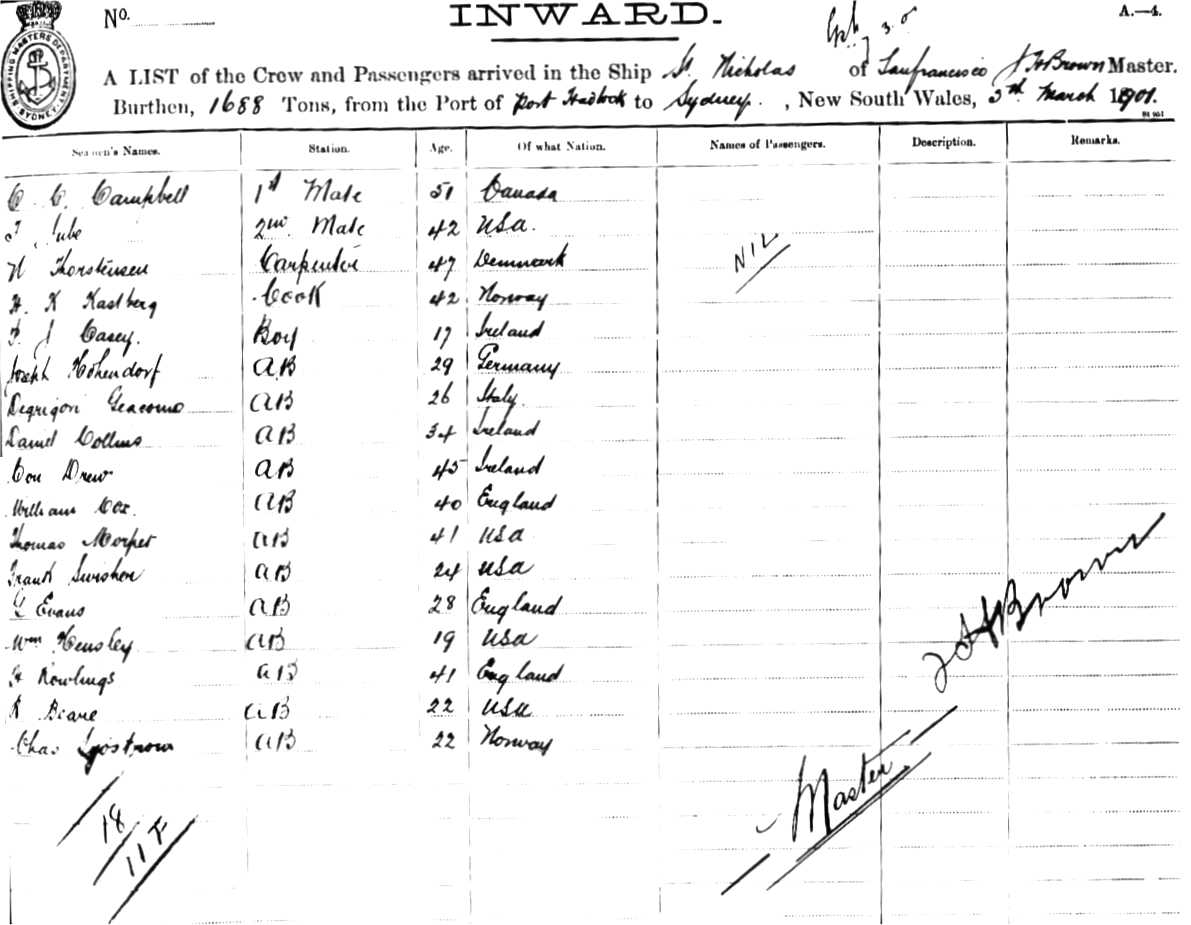 No.
INWARD.
A.—4.
SHIPPING MASTERS DEPARTMENT SYDNEY
A LIST of the Crew and Passengers arrived in the Ship St. Nicholas of Sanfrancisco Brown Master.
Burthen, 1688 Tons, from the Port of Port Hadlock to Sydney. , New South Wales, March 1901.
Seamen's Names. Station. Age. Of what Nation. Names of Passengers. Description. Remarks.
C. C. Campbell 1st Mate 51 Canada
2nd Mate 42 USA.
Thorstensen Carpenter 47 Denmark
NIL
H. K Kastberg Cook 42 Norway
J Casey. Boy 17 Ireland
Joseph Hohendorf AB 29 Germany
Degrigori Geacomo AB 26 Italy.
Daniel Collins AB 34 Ireland
Con Drew AB 45 Ireland
William Cox. AB 40 England
Thomas Morpet AB 41 USA
Frank Swisher AB 24 USA
Evans AB 28 England
Wm Hensley AB 19 USA
H Rowlings AB 41 England
R Beane AB 22 USA
Chas AB 22 Norway
Brown
Master
18
11 F